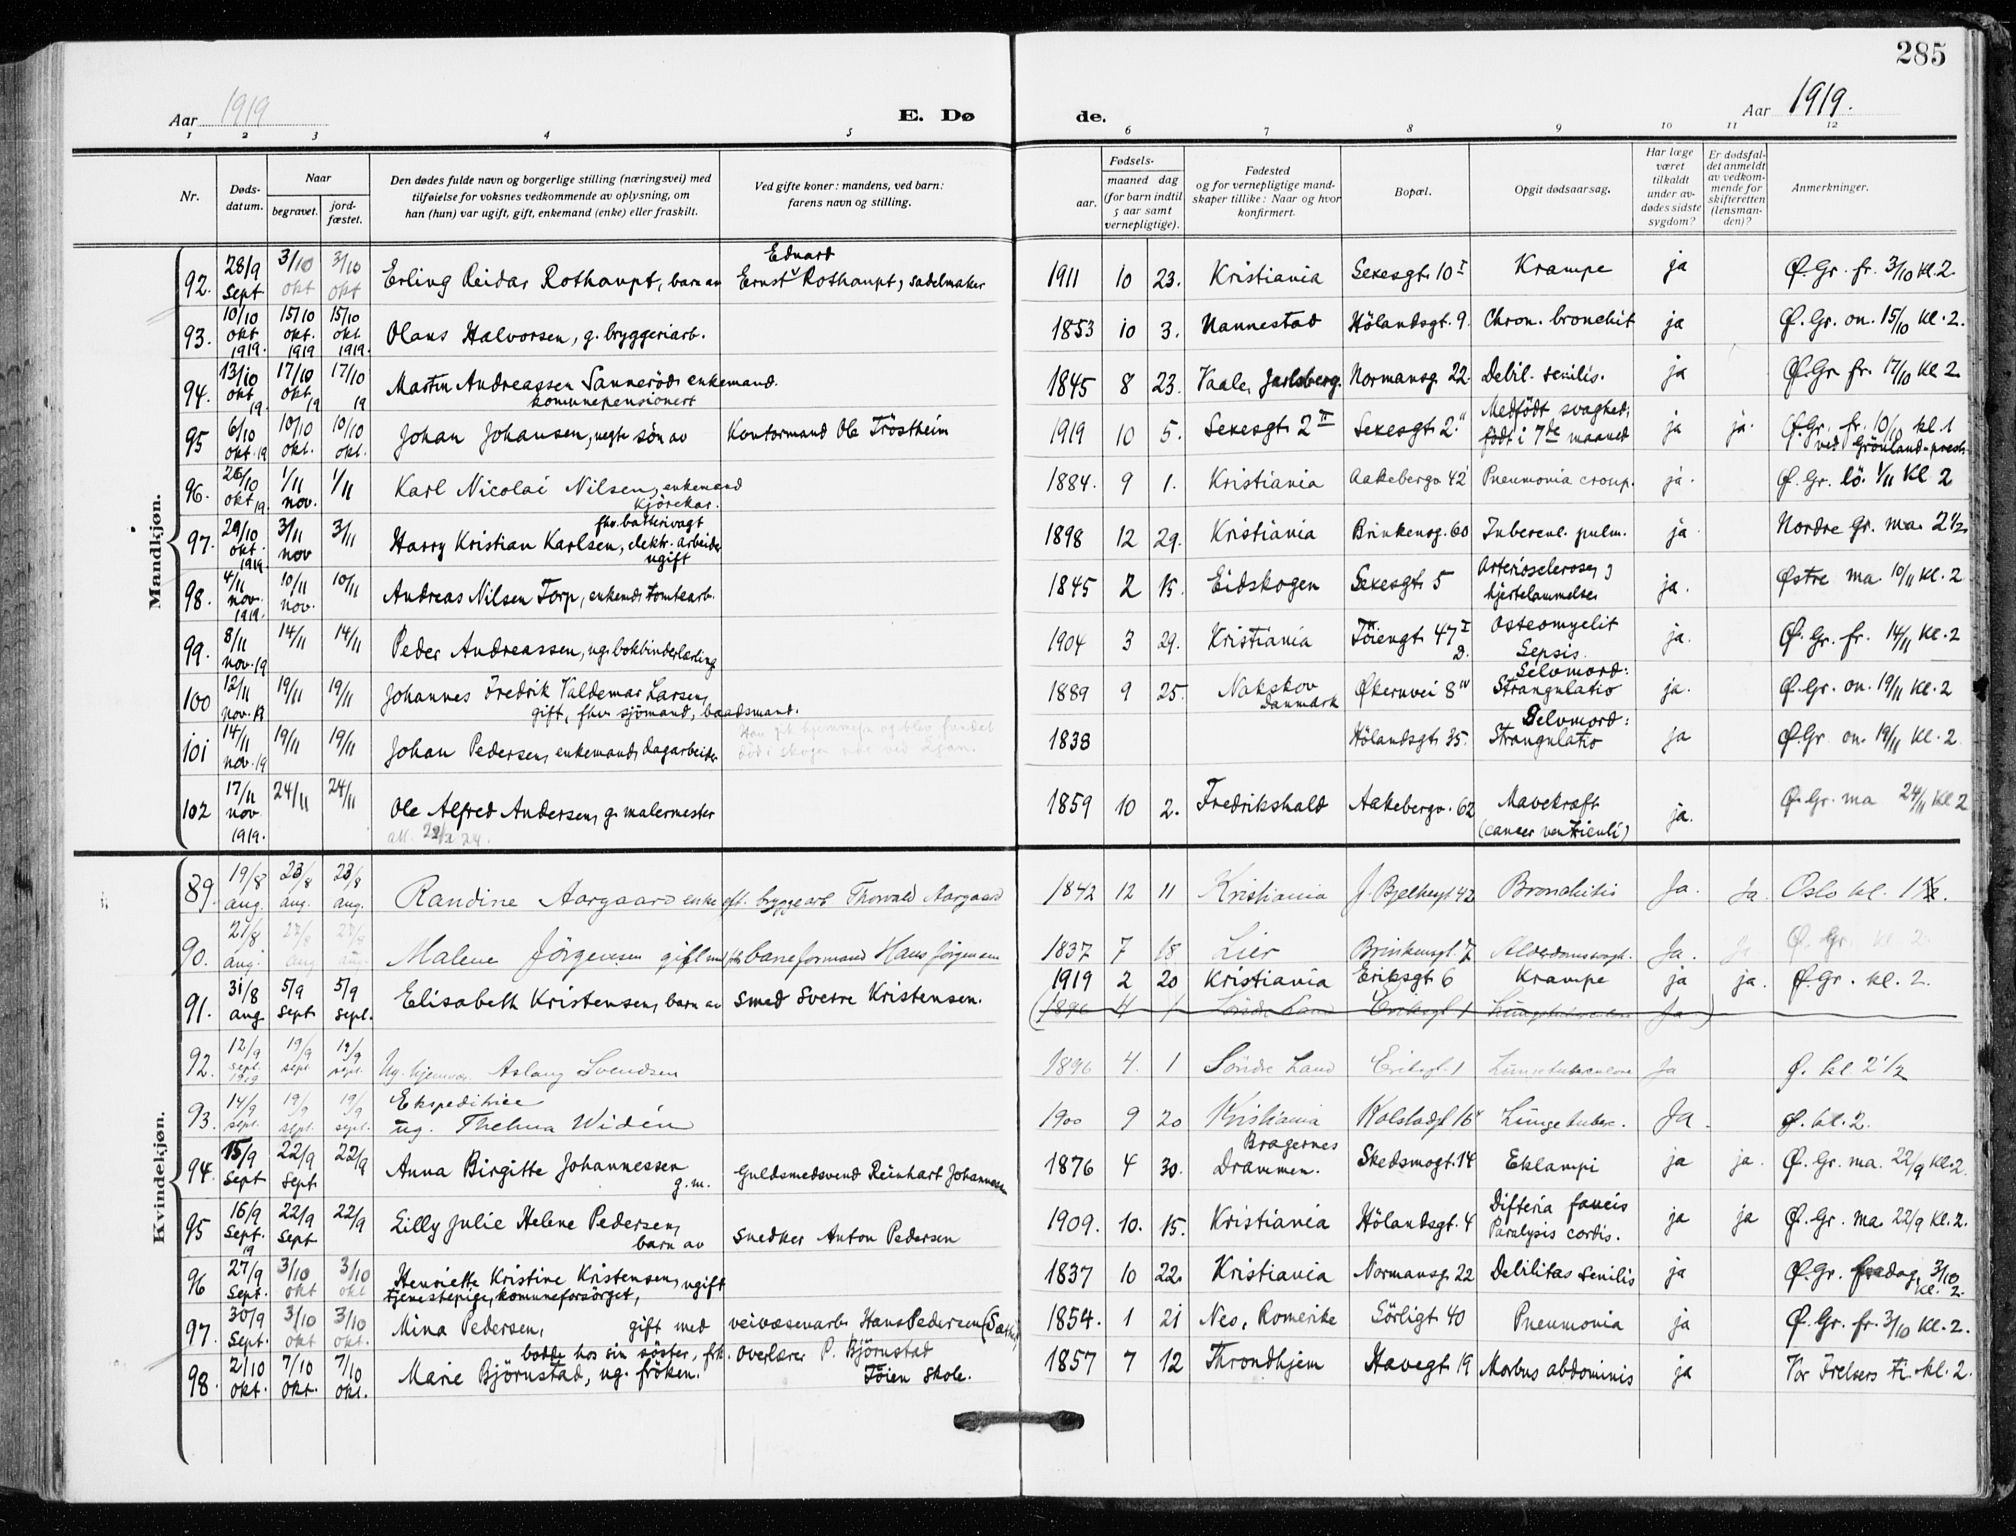 285
Aar 1919
E. Dø de.
Aar 1919.
1 2 3 4 5 6 7 8 9 10 11 12
Nr.
Døds-
datum.
Naar
begravet.
jord-
fæstet.
Den dødes fulde navn og borgerlige stilling (næringsvei) med
tilføielse for voksnes vedkommende av oplysning, om
han (hun) var ugift, gift, enkemand (enke) eller fraskilt.
Ved gifte koner: mandens, ved barn:
farens navn og stilling.
Fødsels-
aar.
maaned dag
(for barn indtil
5 aar samt
vernepligtige).
Fødested
og for vernepligtige mand-
skaper tillike: Naar og hvor
konfirmert.
Bopæl.
Opgit dødsaarsag.
Har læge
været
tilkaldt
under av-
dødes sidste
sygdom?
Er dødsfal-
det anmeldt
av vedkom-
mende for
skifteretten
(lensman-
den)?
Anmerkninger.
Mandkjøn.
92. 28/9 Sept 3/10 okt 3/10 okt Erling Reidar Rothaupt, barn av Ernst Eduard Rothaupt, sadelmaker 1911 10 23. Kristiania Sexesgt 10 I Krampe ja Ø. Gr. fr. 3/10 kl. 2
93. 10/10 okt 1919. 15/10 okt. 1919 15/10 okt 1919. Olaus Halvorsen, g. bryggeriarb. 1853 10 3. Nannestad Hölandsgt. 9. Chron. bronchit ja Ø. Gr. on. 15/10 kl. 2.
94. 13/10 okt 19. 17/10 okt. 19 17/10 19 Martin Andreassen Sanneröd, enkemand.
kommunepensionert 1845 8 23. Vaale, Jarlsberg. Normansg. 22. Debil. senilis. ja Ø. Gr. fr. 17/10 kl 2
95 6/10 okt. 19 10/10 okt. 10/10 okt. Johan Johansen, uegte søn av Kontormand Ole Tröstheim 1919 10 5. Sexesgt 2 II Sexesgt 2 II Medfödt svaghed;
födt i 7de maaned ja ja. Ø. Gr. fr. 10/10 kl. 1
ved Grönland-prest.
96. 26/10 okt 19. 1/11 nov. 1/11 Karl Nicolai Nilsen, enkemand
kjörekar. 1884. 9 1. Kristiania Aakebergv 42 Pneumonia croup. ja. Ø. Gr. lö. 1/11 kl 2
97. 29/10 okt. 1919 3/11 nov 3/11 fhv. batterivagt
Harry Kristian Karlsen, elektr. arbeider
ugift 1898 12 29. Kristiania Brinkensg. 60 Tubercul. pulm. ja Nordre Gr. ma. 2 1/2
98. 4/11 nov. 1919. 10/11 nov. 10/11 Andreas Nilsen Torp, enkemd. tomtearb. 1845 2 15. Eidskogen Sexesgt 5 Arteriosclerose;
hjertelammelse ja. Østre ma 10/11 kl. 2
99. 8/11 nov. 19 14/11 14/11 Peder Andreassen, ug. bokbinderlærling 1904 3 29. Kristiania Töiengt 47 I
D. Osteomyelit
Sepsis. ja. Ø. Gr. fr. 14/11 kl. 2
100 12/11 nov. 19 19/11 19/11 Johannes Fredrik Valdemar Larsen,
gift, fhv. sjömand, baadsmand. 1889 9 25. Nakskov
Danmark Økernvei 8 IV Selvmord:
Strangulatio ja. Ø. Gr. on. 19/11 kl. 2
101 14/11 nov. 19 19/11 19/11 Johan Pedersen, enkemand, dagarbeider Han gik hjemmefra og blev fundet
död i skogen ude ved Ljan. 1838 Hölandsgt 35. Selvmord:
Strangulatio ja Ø. Gr. on. 19/11 kl. 2.
102 17/11 nov 1919. 24/11 24/11 Ole Alfred Andersen, g. malermester
att. 22/2 24. 1859 10 2. Fredrikshald Aakebergv. 62 Mavekræft
(cancer ventriculi) ja. Ø. Gr. ma 24/11 kl 2
Kvindekjøn.
89. 19/8 aug. 23/8 aug. 23/8 aug. Randine Aargaard enke eft. bryggearb Thorvald Aargaard 1842 12 11 Kristiania J. Bjelkesgt 42 Bronchitis Ja. Ja. Oslo kl. 1 1/2.
90. 21/8 aug. 27/8 aug 27/8 aug. Malene Jörgensen gift med fhv. baneformand Hans Jörgensen 1837 7 18. Lier Brinkensgt. 7 Alderdomssvagh. Ja. Ja Ø. Gr. kl. 2
91. 31/8 aug 5/9 sept 5/9 sept. Elisabeth Kristensen, barn av smed Sverre Kristensen. 1919 2 20 Kristiania Eriksgt 6 Krampe ja ja. Ø. Gr. kl. 2.
(1896 4 1 Söndre Land Eriksgt 1 Lungetuberculose Ja)
92. 12/9 sept. 1919 19/9 sept 19/9 sept. Ug. hjemmev. Aslaug Svendsen 1896 4. 1 Söndre Land Eriksgt. 1 Lungetuberculose Ja Ø. kl. 2 1/2
93. 14/9 sept. 19/9 sept. 19/9 sept. Ekspeditrice
ug. Thelma Widén 1900 9 20 Kristiania Kolstadgt 16 Lungetuberc. Ja. Ø. kl. 2.
94. 15/9 Sept 22/9 Sept. 22/9 Anna Birgitte Johannessen
g. m. Guldsmedsvend Reinhart Johannessen 1876 4 30. Bragernes
Drammen. Skedsmogt. 14 Eklampi ja ja. Ø. Gr. ma. 22/9 kl. 2.
95 16/9 Sept. 19 22/9 Sept 22/9 Lilly Julie Helene Pedersen,
barn av snedker Anton Pedersen 1909. 10. 15. Kristiania Hölandsgt. 4 Difteria faucis
Paralysis cordis. ja ja Ø. Gr. ma. 22/9 kl. 2.
96 27/9 Sept. 3/10 okt 3/10 okt Henriette Kristine Kristensen, ugift
tjenestepige, kommuneforsörget, 1837 10 22. Kristiania Normansg. 22 Debilitas senilis ja Ø. Gr. fredag, 3/10
kl. 2.
97. 30/9 Sept. 3/10 okt 3/10 okt. Mina Pedersen, gift med veivæsenarb. Hans Pedersen 1854. 1 21 Nes, Romerike Sörligt 40 Pneumonia ja Ø. Gr. fr. 3/10 kl. 2.
98. 2/10 okt. 7/10 okt. 7/10 okt. bodde hos sin söster, frk. overlærer P. Björnstad
Marie Björnstad, ug. fröken. Töien Skole. 1857 7 12 Throndhjem Havegt 19 Morbus abdominis ja Vor Frelsers ti. kl. 2.